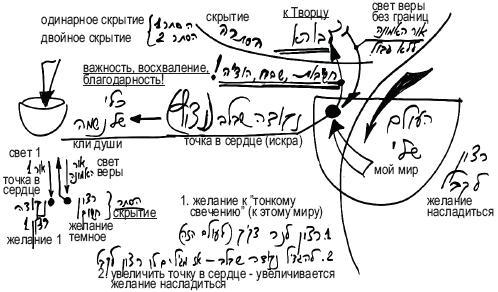 одинарное скрытие
двойное скрытие
הסתר 1
הסתר 2
скрытие
הסתרה
к Творцу
לבורא
свет веры
без границ
אור האמונה
ללא גבול
важность, восхваление,
благодарность!
חשיבות, שבח, הודיה!
כלי
של נשמה
кли души
נקודה שבלב
точка в сердце (искра)
העולם
שלי
мой мир
רצון
לקבל
желание
насладиться
свет 1
אור 1
точка в
сердце
נקודה
רצון 1
желание 1
אור
האמונה
свет
веры
רצון
желание
темное
הסתר
скрытие
1. желание к "тонкому
свечению" (к этому миру)
1. רצון לנר דקיק (לעולם הזה)
2. להגדיל נקודה שבלב - אז מגדילים לו רצון לקבל
2. увеличить точку в сердце - увеличивается
желание насладиться